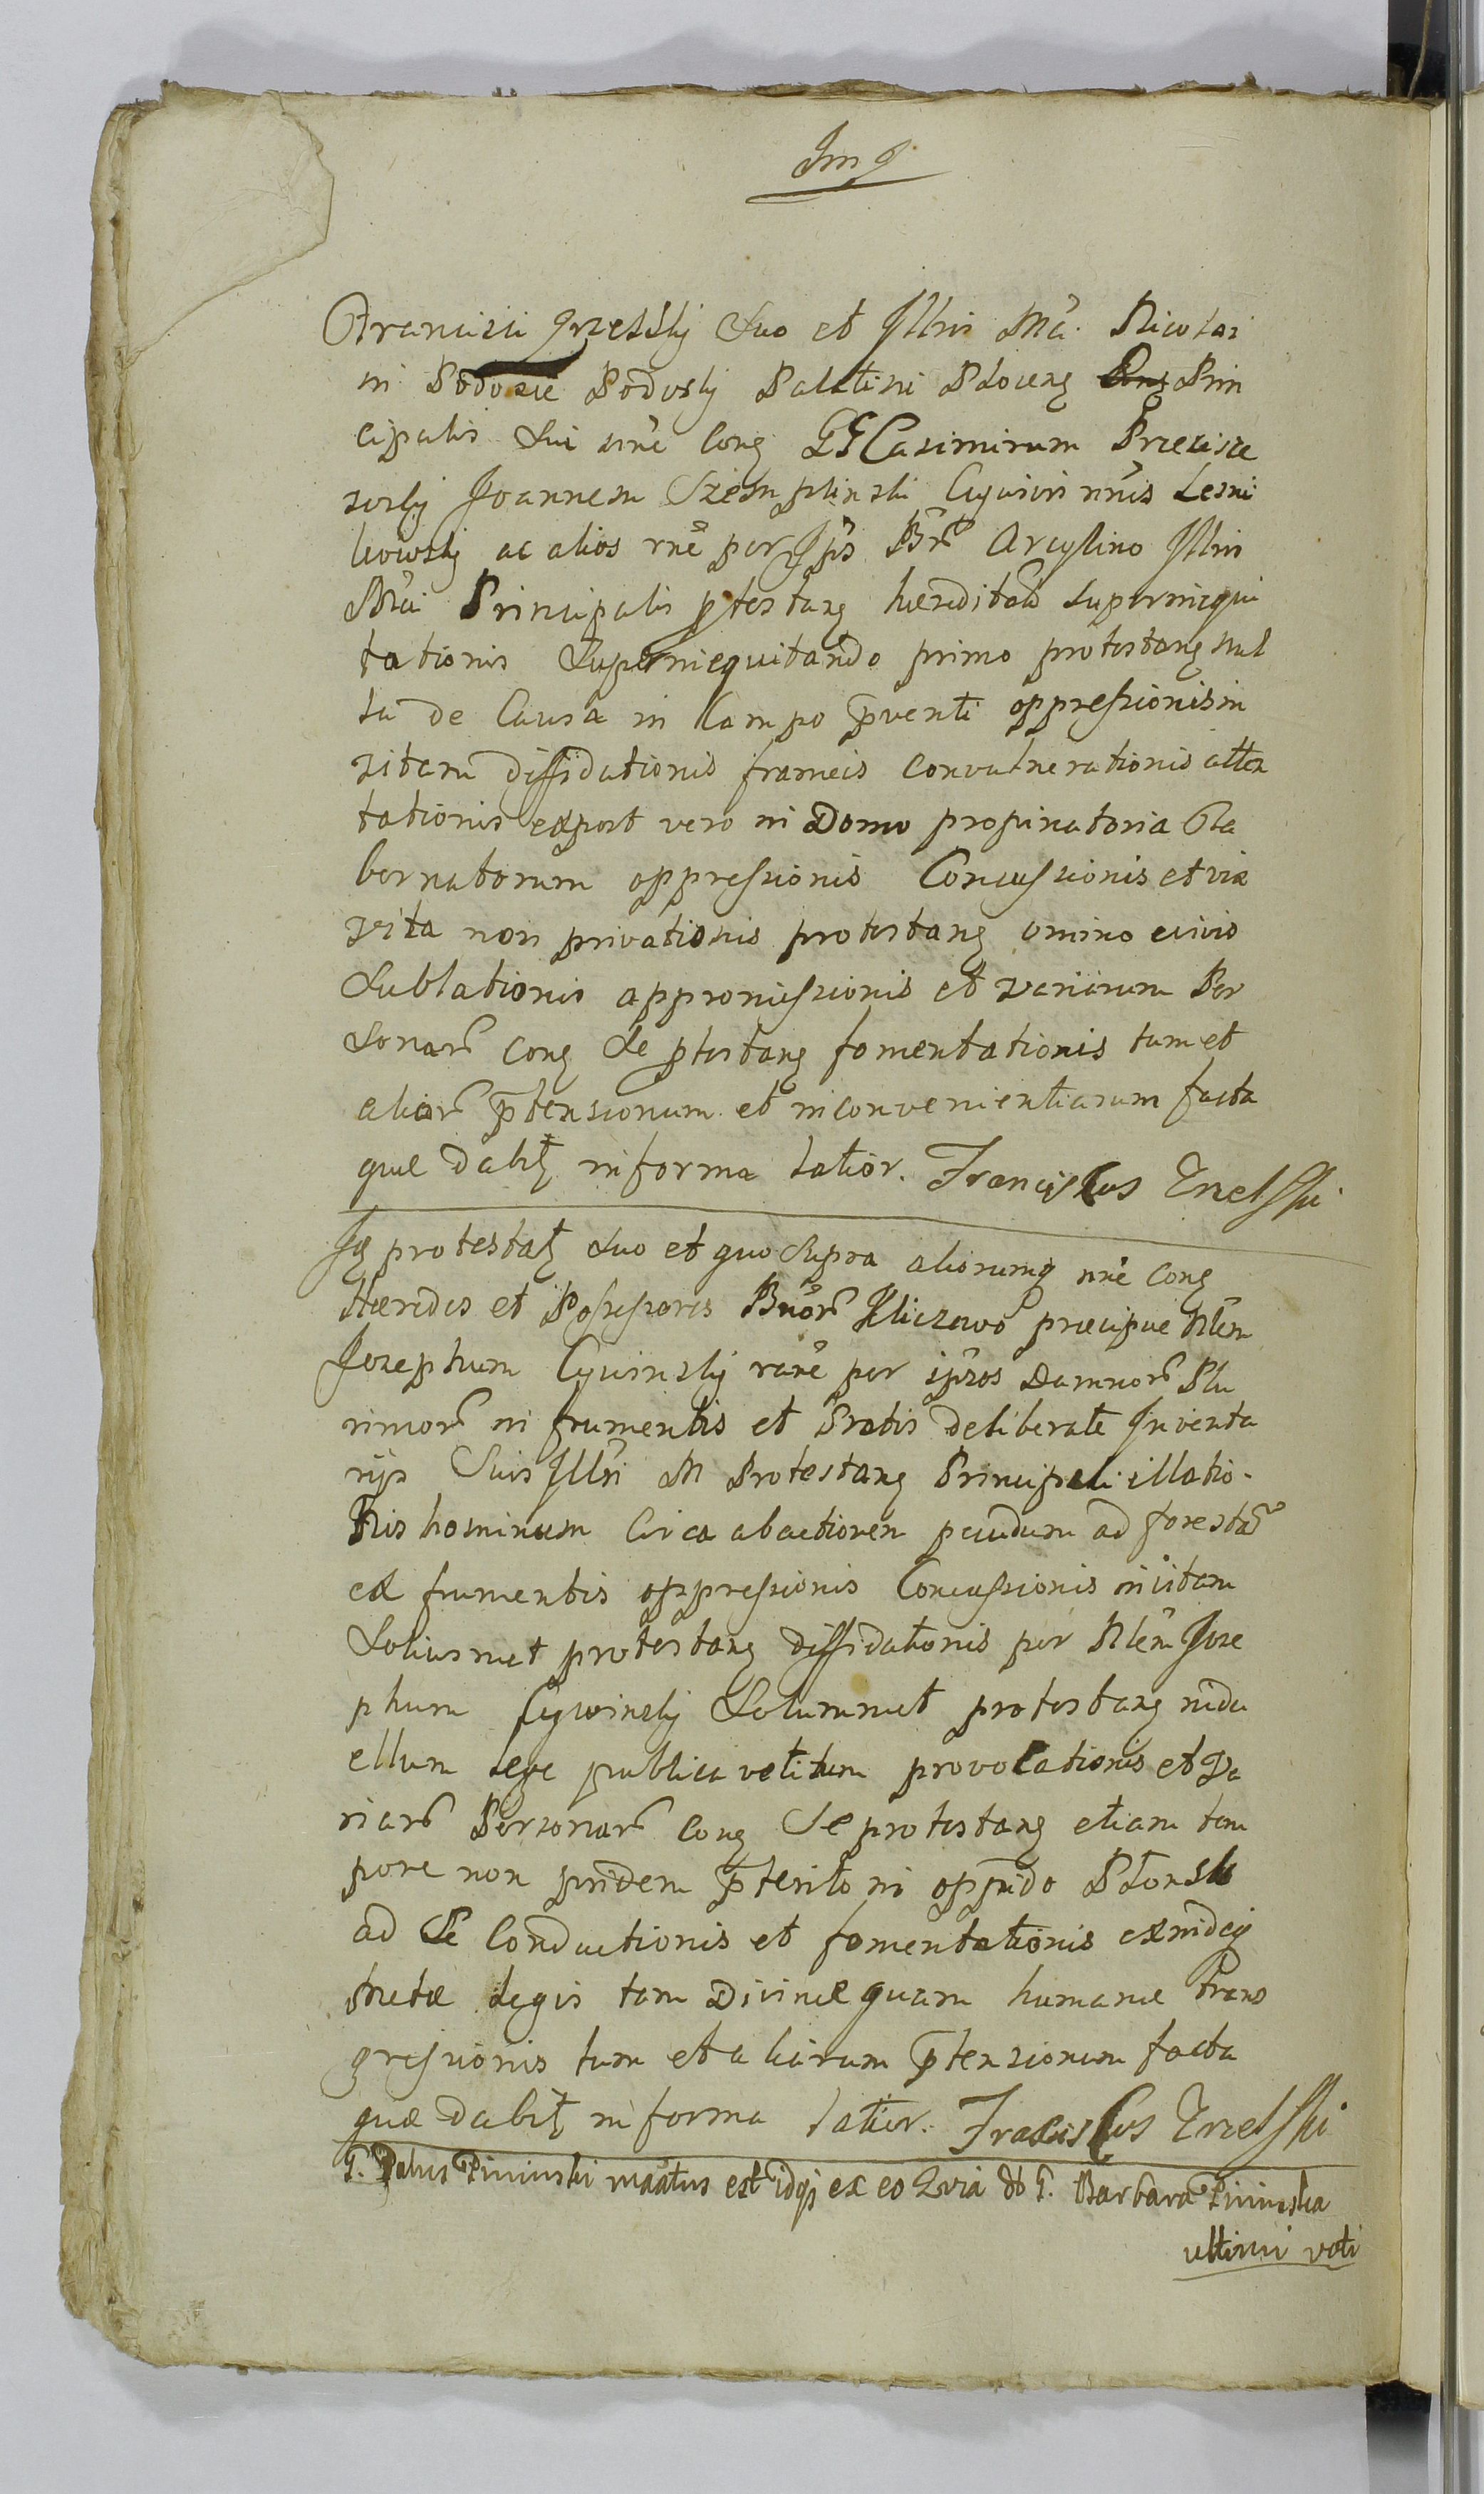 Francisci Grzelski Suo et Illris Mci Nicolai
in Podosie Podoski Palatini Plocen Prin
cipalis Sui nne Cong GG Casimirum Przecisze
wski Joannem Szemplinski Cywin nnis Lesni
kowski ac alios rne per Ipsos Bnr Arcylino Illris
Mci Principalis ptestang hæreditar superinequi
tationis Superinequitando primo protestang nul
la de Causa in Campo pventi oppressionis in
vitam diffidationis frameis convulnerationis atten
tationis expost vero in Domo propinatoria Ta
bernatorum oppressionis Concussionis et vix
vita non privationis protestang omino civis
Sublationis appromissionis et variarum Per
sonar Cong Se ptestang fomentationis tum et
aliar ptensionum et inconvenientiarum facta
quæ dabit informa latior. Franciscus Grzelski
Id protestat Suo et quo Supra aliorumq nne Cong
Hæredes et Possessores Bnor Kliczewo præcipue Nlem
Josephum Cywinski rnne per ipsos Damnor Plu
rimor in frumentis et Pratis deliberate Inventa
rijs Suis Illri M Protestang Principali illatio-
nis hominum Circa abactionem pecudum ad forestar
ex frumentis oppressionis Concussionis in vitam
Soliusmet protestang diffidationis per Nlem Jose
phum Cywinski Solummet protestang indu
ellum lege publica vetitum provocationis et Va
riar Personar Cong Se protestang etiam tem
pore non pridem pterito in oppido Plonsk
ad Se Conductionis et fomentationis exindeq
metæ legis tam Divinæ quam humanæ Trans
gressionis tum et aliarum ptensionum facta
quæ dabit informa latior. Franciscus Grzelski
G. Palus Pininski maatus est idq; ex eo Quia G. Barbara Pininska
ultimi voti